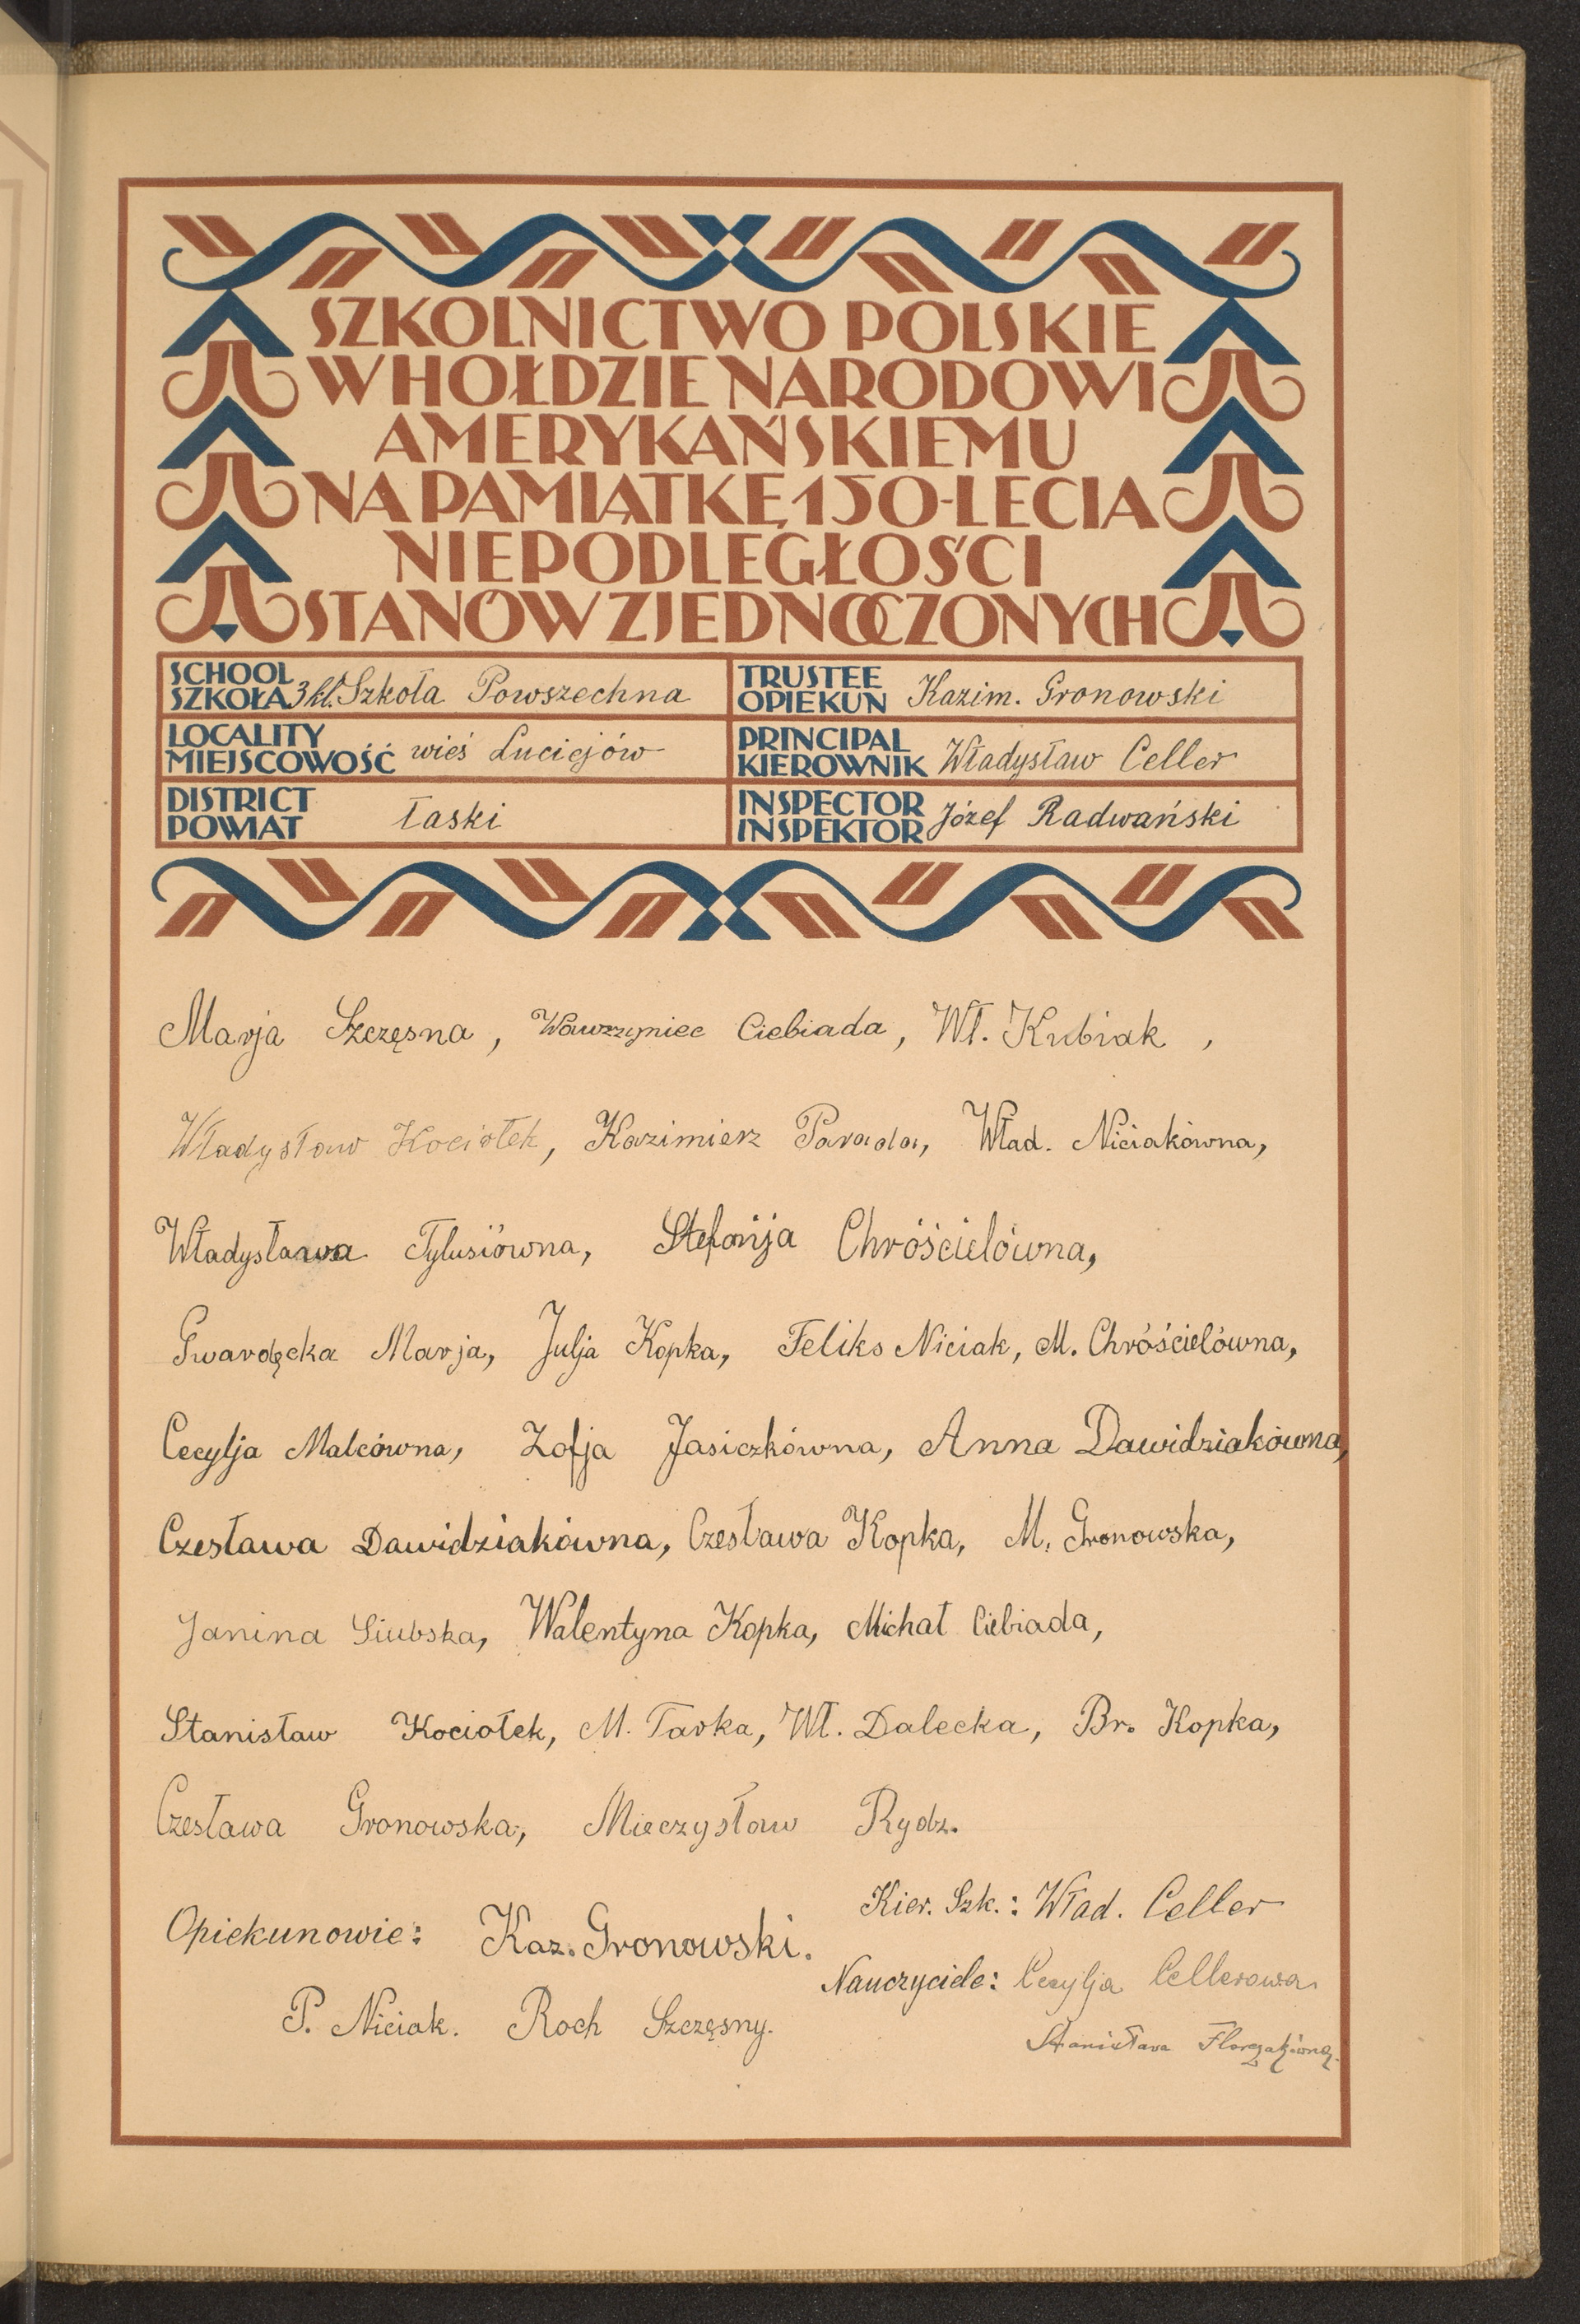 SZKOLNICTWO POLSKIE
W HOŁDZIE NARODOWI
AMERYKAŃSKIEMU
NA PAMIĄTKĘ 150-LECIA
NIEPODLEGŁOŚCI
STANÓW ZJEDNOCZONYCH
SCHOOL
SZKOŁA 3 kl. Szkoła Powszechna
TRUSTEE
OPIEKUN Kazim. Gronowski
LOCALITY
MIEJSCOWOŚĆ wieś Luciejów
PRINCIPAL
KIEROWNIK Władysław Celler
DISTRICT
POWIAT Łaski
INSPECTOR
INSPEKTOR Józef Radwański
Marja Szczęsna, Wawrzyniec Ciebiada, Wł. Kubiak,
Władysław Kociołek, Kazimierz Parada, Wład. Niciakówna,
Władysława Tylusiówna, Stefanja Chróścielówna,
Gwardęcka Marja, Julja Kopka, Feliks Niciak, M. Chróścielówna,
Cecylja Malcówna, Zofja Jasiczkówna, Anna Dawidziakówna,
Czesława Dawidziakówna, Czesława Kopka, M. Gronowska,
Janina Siubska, Walentyna Kopka, Michał Ciebiada,
Stanisław Kociołek, M. Tarka, Wł. Dalecka, Br. Kopka,
Czesława Gronowska, Mieczysław Rydz.
Kier. Szk.: Wład. Celler
Opiekunowie: Kaz. Gronowski.
Nauczyciele: Cecylja Cellerowa
P. Niciak. Roch Szczęsny.
Stanisława